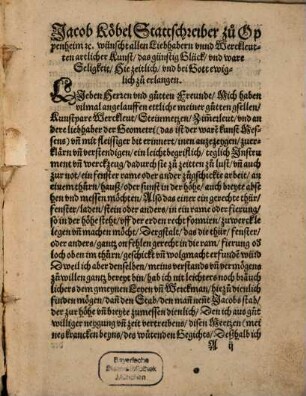 Jacob Köbel Stattschreiber zů Op
penheim ꝛc. wünscht allen Liebhabern vnnd Werckleut
ten artlicher Kunst, das günstig Glück, vnd ware
Seligkeit, Hie zeitlich, vnd bei Gott ewig
lich zů erlangen.
LJeben Herren vnd gůtten Freunde, Mich haben
vilmal angelauffen ettliche meiner gůtten gsellen,
Kunstpare Werckleut, Steinmetzen, Zimerleut, vnd an
dere liebhaber der Geometri (das ist der warẽ kunst Mes
sens) vñ mit fleissiger bit ermant, inen anzezeygen, zuer
klärn vñ verstendigen, ein leicht begreiflich, teglich Jnstru
ment vñ werckzeug, dadurch sie zů zeitten zů lust, vñ auch
zur not, ein fenster rame oder ander zůgschickte arbeit, an
einem thürn, hauß, oder sunst in der höhe, auch breyte abse
hen vnd messen möchten, Also das einer ein gerechte thür,
fenster, laden, stein oder anders, in ein rame oder fierung, so
in der höhe steht, vff der erden recht formirn, zuwerck le
gen vñ machen möcht, Dergstalt, das die thür, fenster,
oder anders, gantz on fehlen gerecht in die ram, fierung oder
loch oben im thürn, geschickt vñ wolgmacht erfunde würd
Dweil ich aber denselben, meins verstands vñ vermögens
zu willen gantz bereyt bin, hab ich nit leichters noch bräuch
lichers dem gmeynen Leyen vñ Werckman, hiezu dienlich
finden mögen, dañ den Stab, den mañ neñt Jacobs stab,
der zur höhe vñ breyte zumessen dienlich, Den ich aus gůt
williger neygung vñ zeit vertreibens, disen Herren,
neg krancken beyns, des wütenden Gegichts, Deßhalb ich
A ij
Bayerische
Staatsbibliothek
München